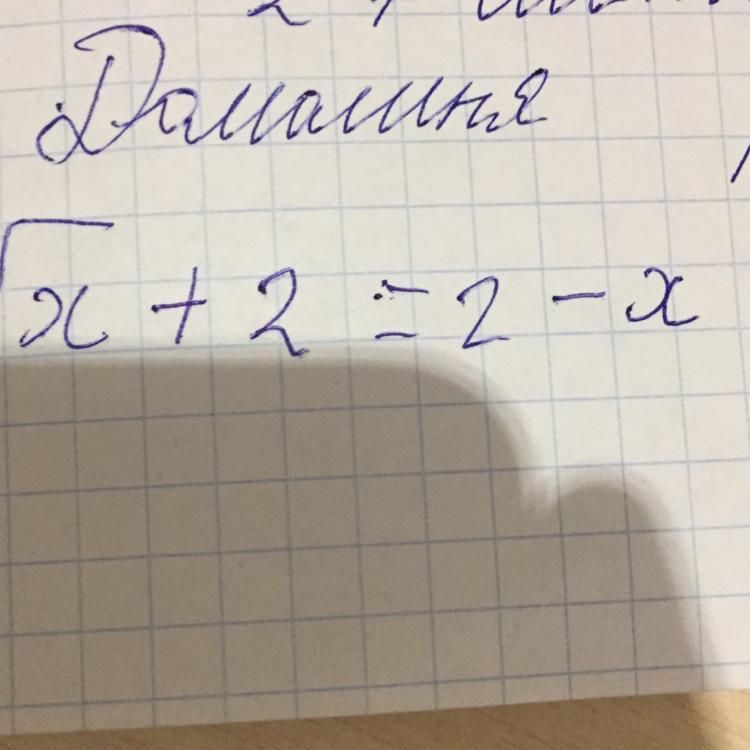 Домашня
√x + 2 = 2 - x